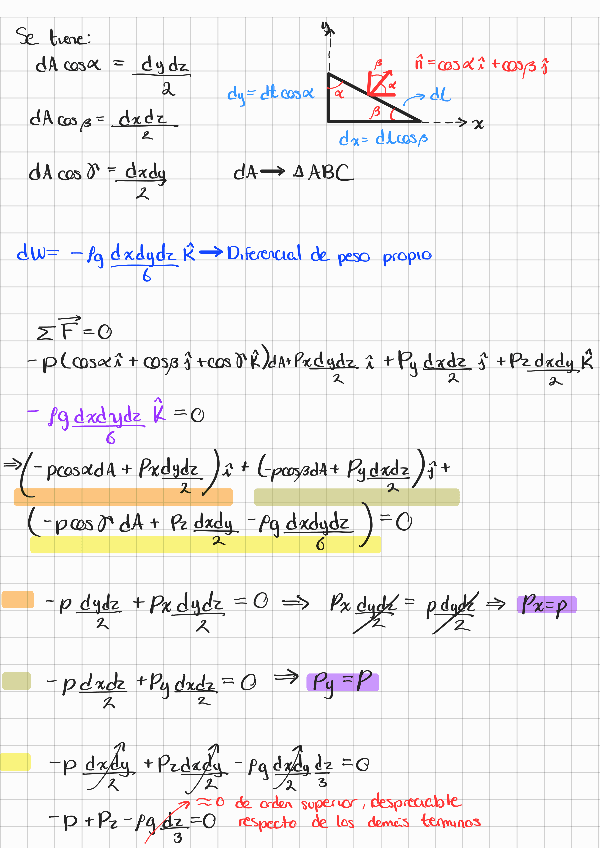 Se tiene:
dA cosα = dydz/2
dA cosβ = dxdz/2
dA cosγ = dxdy/2
dA → ΔABC
y
n̂ = cosα î + cosβ ĵ
β
α
dy = dl cosα
α
dl
β
x
dx = dl cosβ
dW = -ρg dxdydz/6 K̂ → Diferencial de peso propio
ΣF⃗ = 0
-p(cosα î + cosβ ĵ + cosγ K̂)dA + Px dydz/2 î + Py dxdz/2 ĵ + Pz dxdy/2 K̂
- ρg dxdydz/6 K̂ = 0
⇒ (-pcosαdA + Px dydz/2) î + (-pcosβdA + Py dxdz/2) ĵ +
(-pcosγ dA + Pz dxdy/2 - ρg dxdydz/6) = 0
-p dydz/2 + Px dydz/2 = 0 ⇒ Px dydz/2 = p dydz/2 ⇒ Px=p
-p dxdz/2 + Py dxdz/2 = 0 ⇒ Py = P
-p dxdy/2 + Pz dxdy/2 - ρg dxdy/2 dz/3 = 0
≈0 de orden superior, despreciable
-p + Pz - ρg dz/3 = 0 respecto de los demás términos